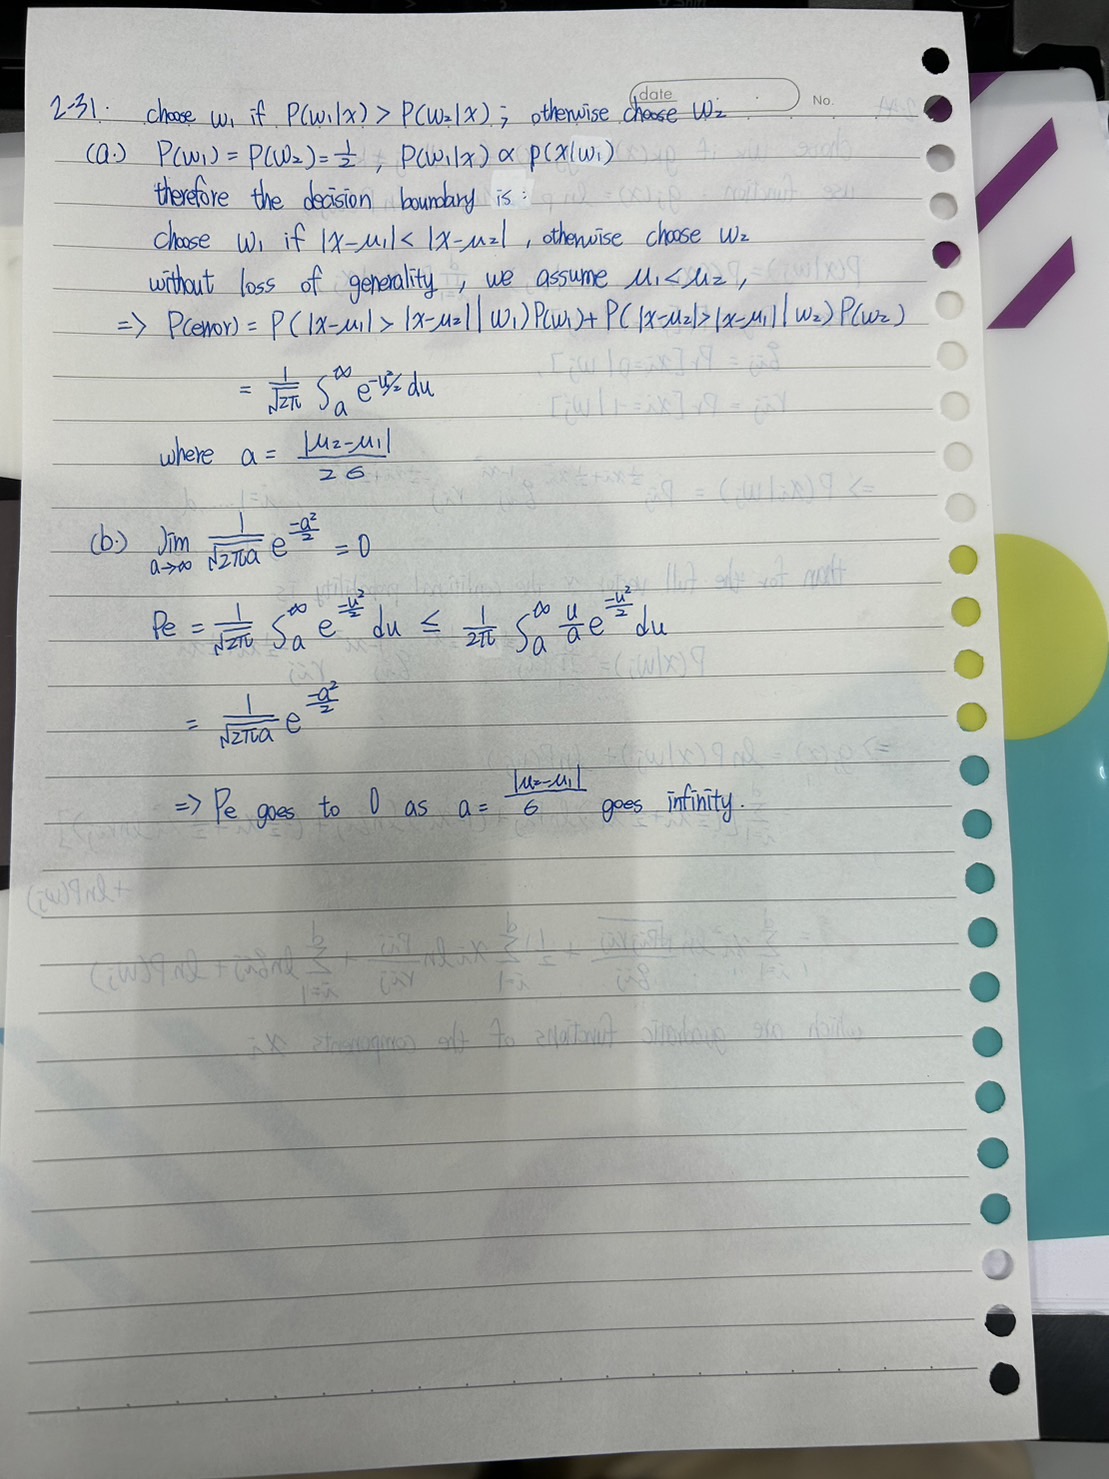 date
No.
2-31. choose w₁ if P(w₁|x) > P(w₂|x) ; otherwise choose w₂
(a.) P(w₁) = P(w₂) = 1/2 , P(w₁|x) ∝ p(x|w₁)
therefore the decision boundary is :
choose w₁ if |x-μ₁| < |x-μ₂| , otherwise choose w₂
without loss of generality, we assume μ₁<μ₂ ,
=> P(error) = P( |x-μ₁| > |x-μ₂| | w₁) P(w₁) + P( |x-μ₂| > |x-μ₁| | w₂) P(w₂)
= 1/√2π ∫ₐ^∞ e^(-u²/2) du
where a = |μ₂-μ₁| / 2σ
(b.) lim a→∞ 1/√2πa e^(-a²/2) = 0
Pe = 1/√2π ∫ₐ^∞ e^(-u²/2) du ≤ 1/2π ∫ₐ^∞ u/a e^(-u²/2) du
= 1/√2πa e^(-a²/2)
=> Pe goes to 0 as a = |μ₂-μ₁| / σ goes infinity.